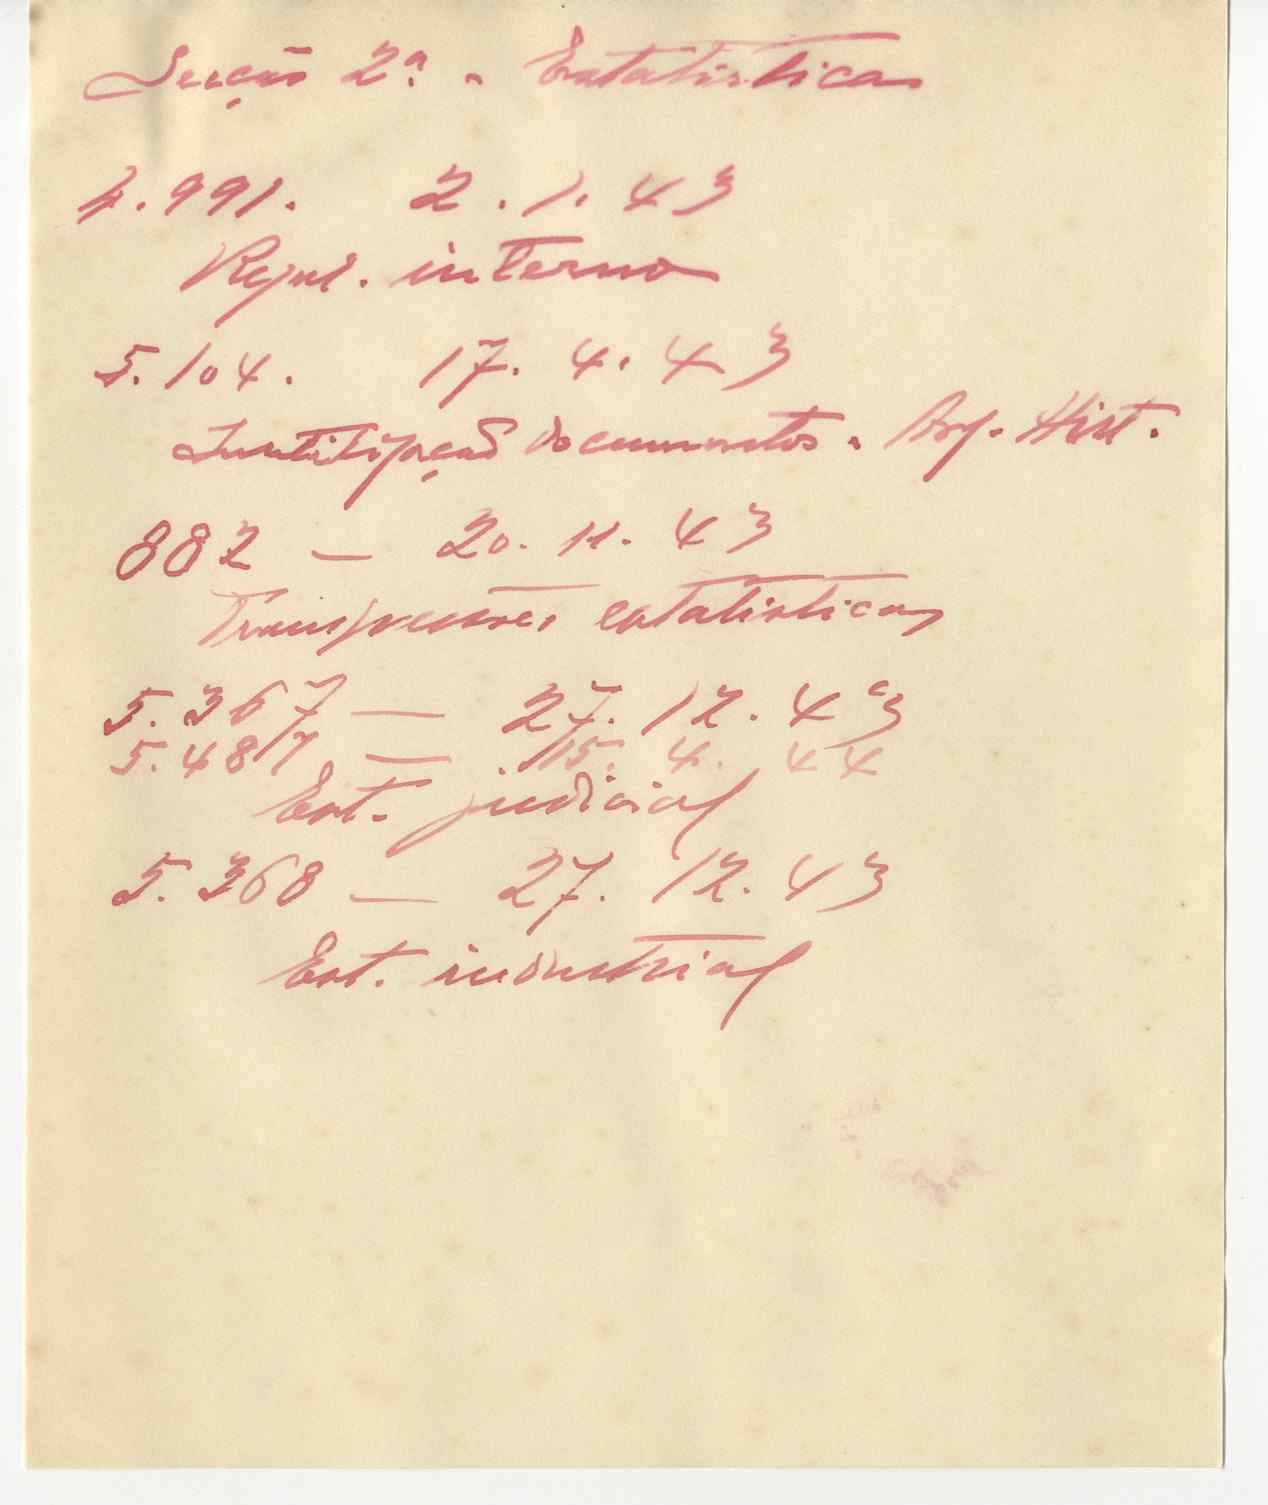 Secção 2ª - Estatisticas
4.991. 2.1.43
Regul. interno
5.104. 17.4.43
Inutilização documentos. Arq. Hist.
882 — 20.11.43
Transgressões estatisticas
5.367 — 27.12.43
5.487 — 15.4.44
Est. judicial
5.368 — 27.12.43
Est. industrial